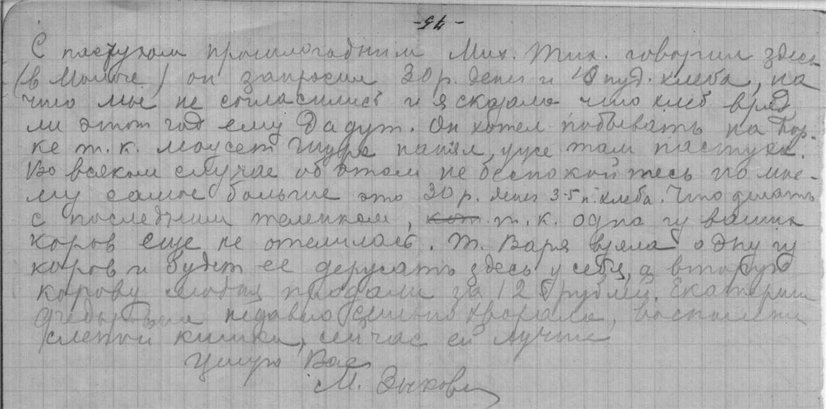 -45-
С пастухом прошлогодним Мих. Тих. говорил здесь
(в Молоче) он запросил 30 р. денег и 10 пуд. хлеба, на
что мы не согласились и я сказала что хлеб вряд
ли этот год ему дадут. Он хотел побывать на Гор-
ке т. к. может Шура нанял уже там пастуха.
Во всяком случае об этом не беспокойтесь по мое-
му самое большее это 30 р. денег 3-5 п. хлеба. Что делать
с последним теленком, т. к. одна из ваших
коров еще не отелилась. Т. Варя взяла одну из
коров и будет ее держать здесь у себя, а вторую
корову продали за 120 рублей. Екатерина
Федоровна недавно сильно хворала, воспаление
слепой кишки, сейчас ей лучше
Целую Вас
М. Зыкова